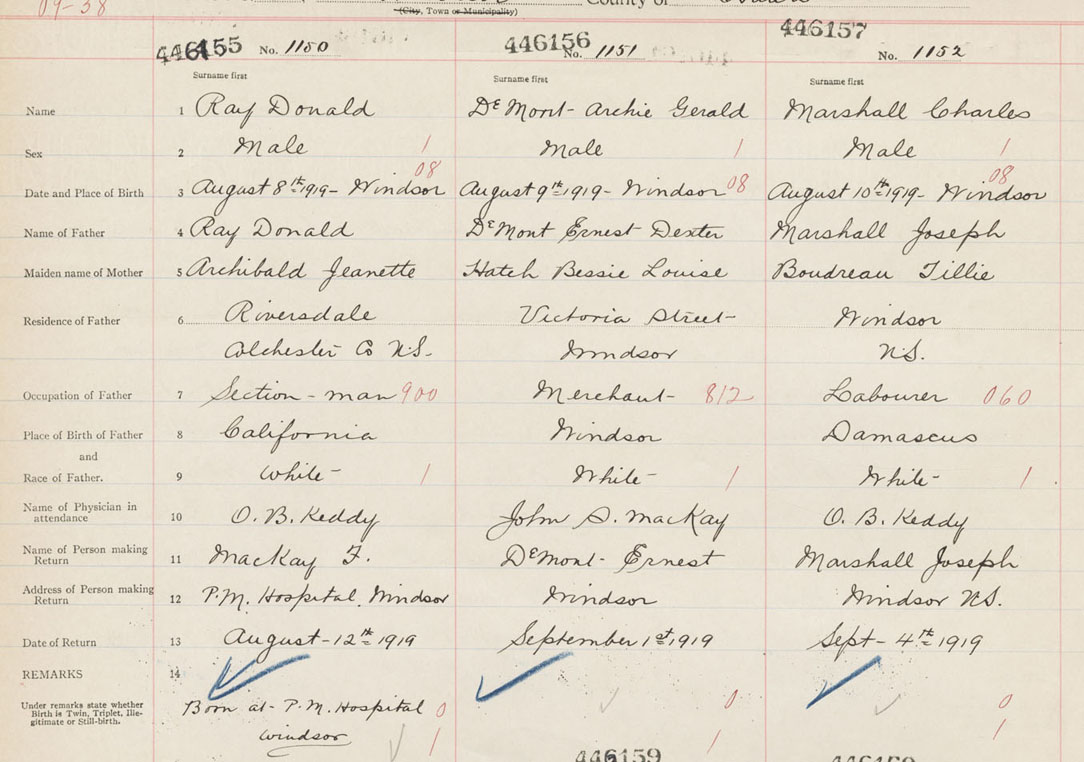 09-38
County of
(City, Town or Municipality)
446155 No. 1150
446156 No. 1151
446157 No. 1152
Surname first Surname first Surname first
Name 1 Ray Donald DeMont- Archie Gerald Marshall Charles
Sex 2 Male 1 Male 1 Male 1
08 08 08
Date and Place of Birth 3 August 8th 1919- Windsor August 9th 1919- Windsor August 10th 1919- Windsor
Name of Father 4 Ray Donald DeMont Ernest Dexter Marshall Joseph
Maiden name of Mother 5 Archibald Jeanette Hatch Bessie Louise Boudreau Tillie
Residence of Father 6 Riversdale Victoria Street- Windsor
Colchester Co N.S. Windsor N.S.
Occupation of Father 7 Section-man 900 Merchant- 812 Labourer 060
Place of Birth of Father 8 California Windsor Damascus
and
Race of Father. 9 White- 1 White- 1 White- 1
Name of Physician in
attendance 10 O. B. Keddy John S. MacKay O. B. Keddy
Name of Person making
Return 11 MacKay F. DeMont- Ernest Marshall Joseph
Address of Person making
Return 12 P.M. Hospital, Windsor Windsor Windsor N.S.
Date of Return 13 August-12th 1919 September 1st 1919 Sept- 4th 1919
REMARKS 14
Under remarks state whether
Birth is Twin, Triplet, Ille-
gitimate or Still-birth.
Born at- P.M. Hospital 0 0 0
Windsor 1 1 1
446159